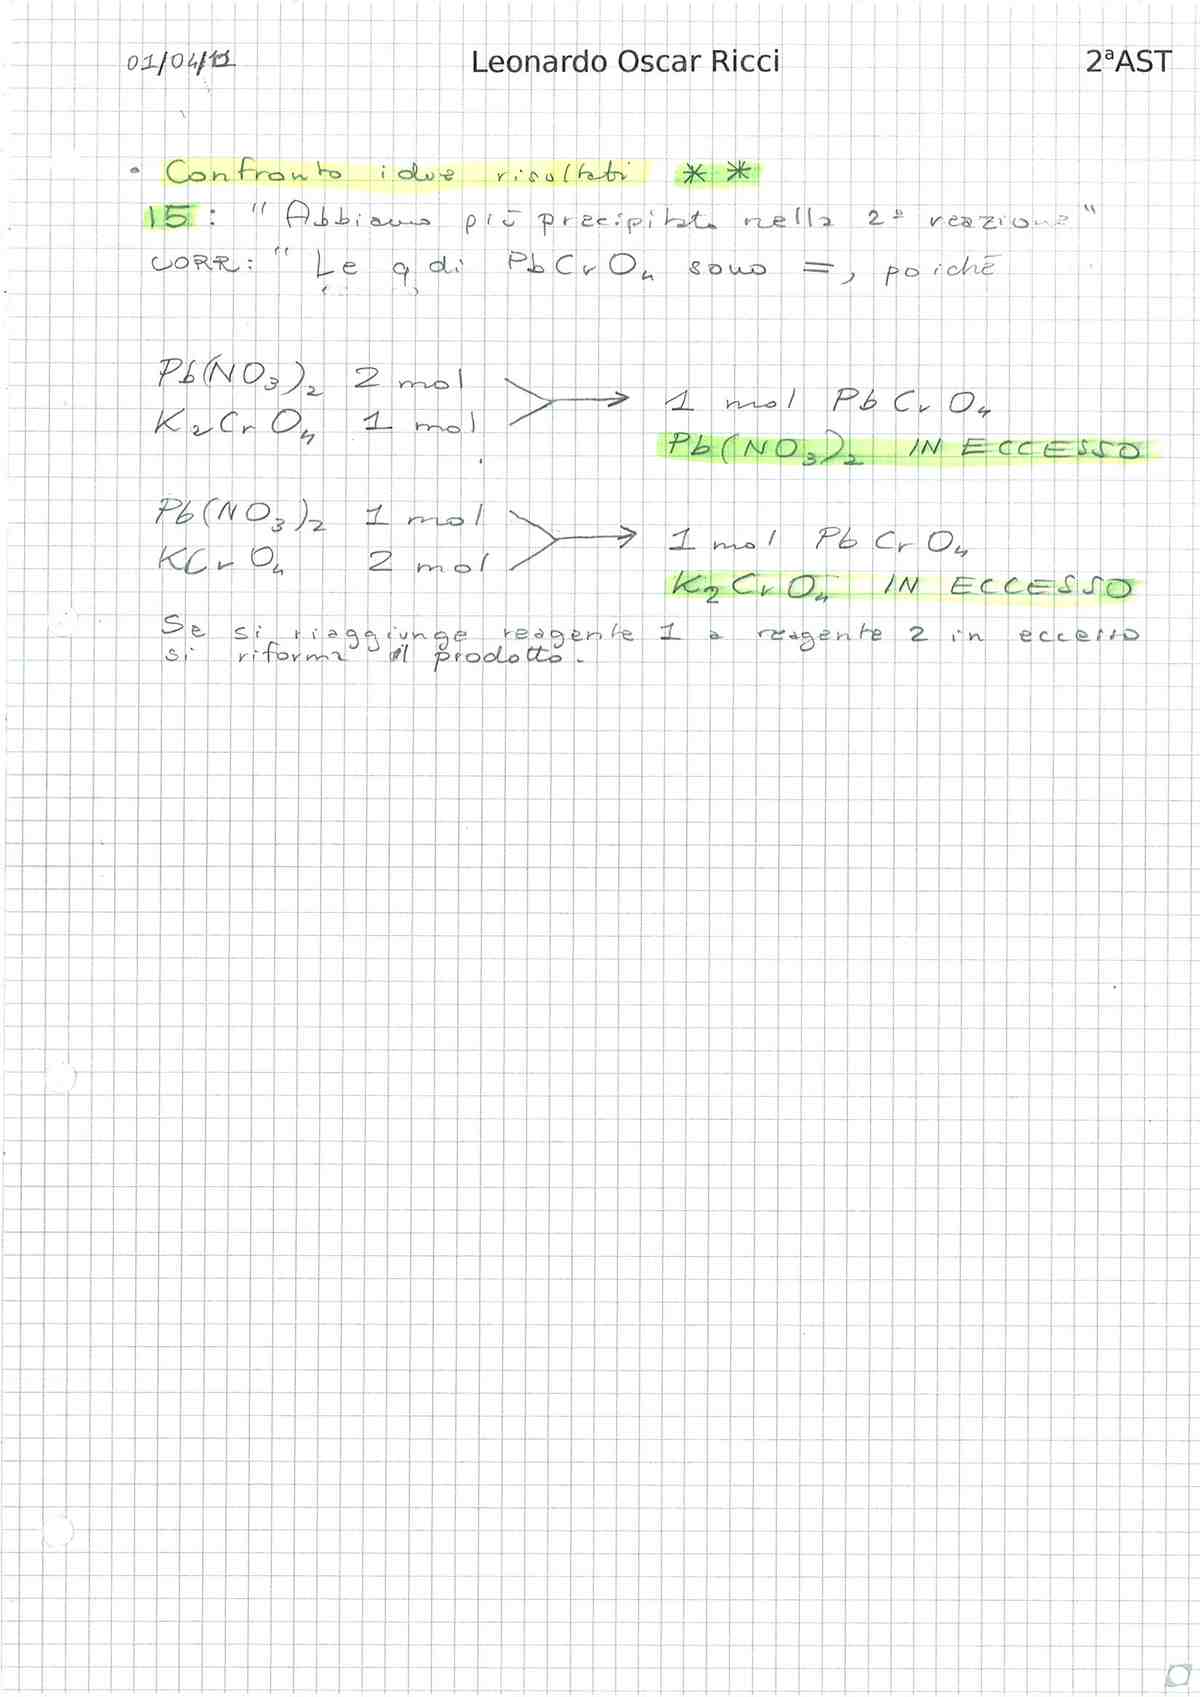 01/04/11 Leonardo Oscar Ricci 2ªAST
• Confronto i due risultati * *
15: "Abbiamo più precipitato nella 2ª reazione"
CORR: "Le q di PbCrO₄ sono =, poiché
Pb(NO₃)₂ 2 mol
K₂CrO₄ 1 mol
1 mol PbCrO₄
Pb(NO₃)₂ IN ECCESSO
Pb(NO₃)₂ 1 mol
KCrO₄ 2 mol
1 mol PbCrO₄
K₂CrO₄ IN ECCESSO
Se si riaggiunge reagente 1 a reagente 2 in eccesso
si riforma il prodotto.